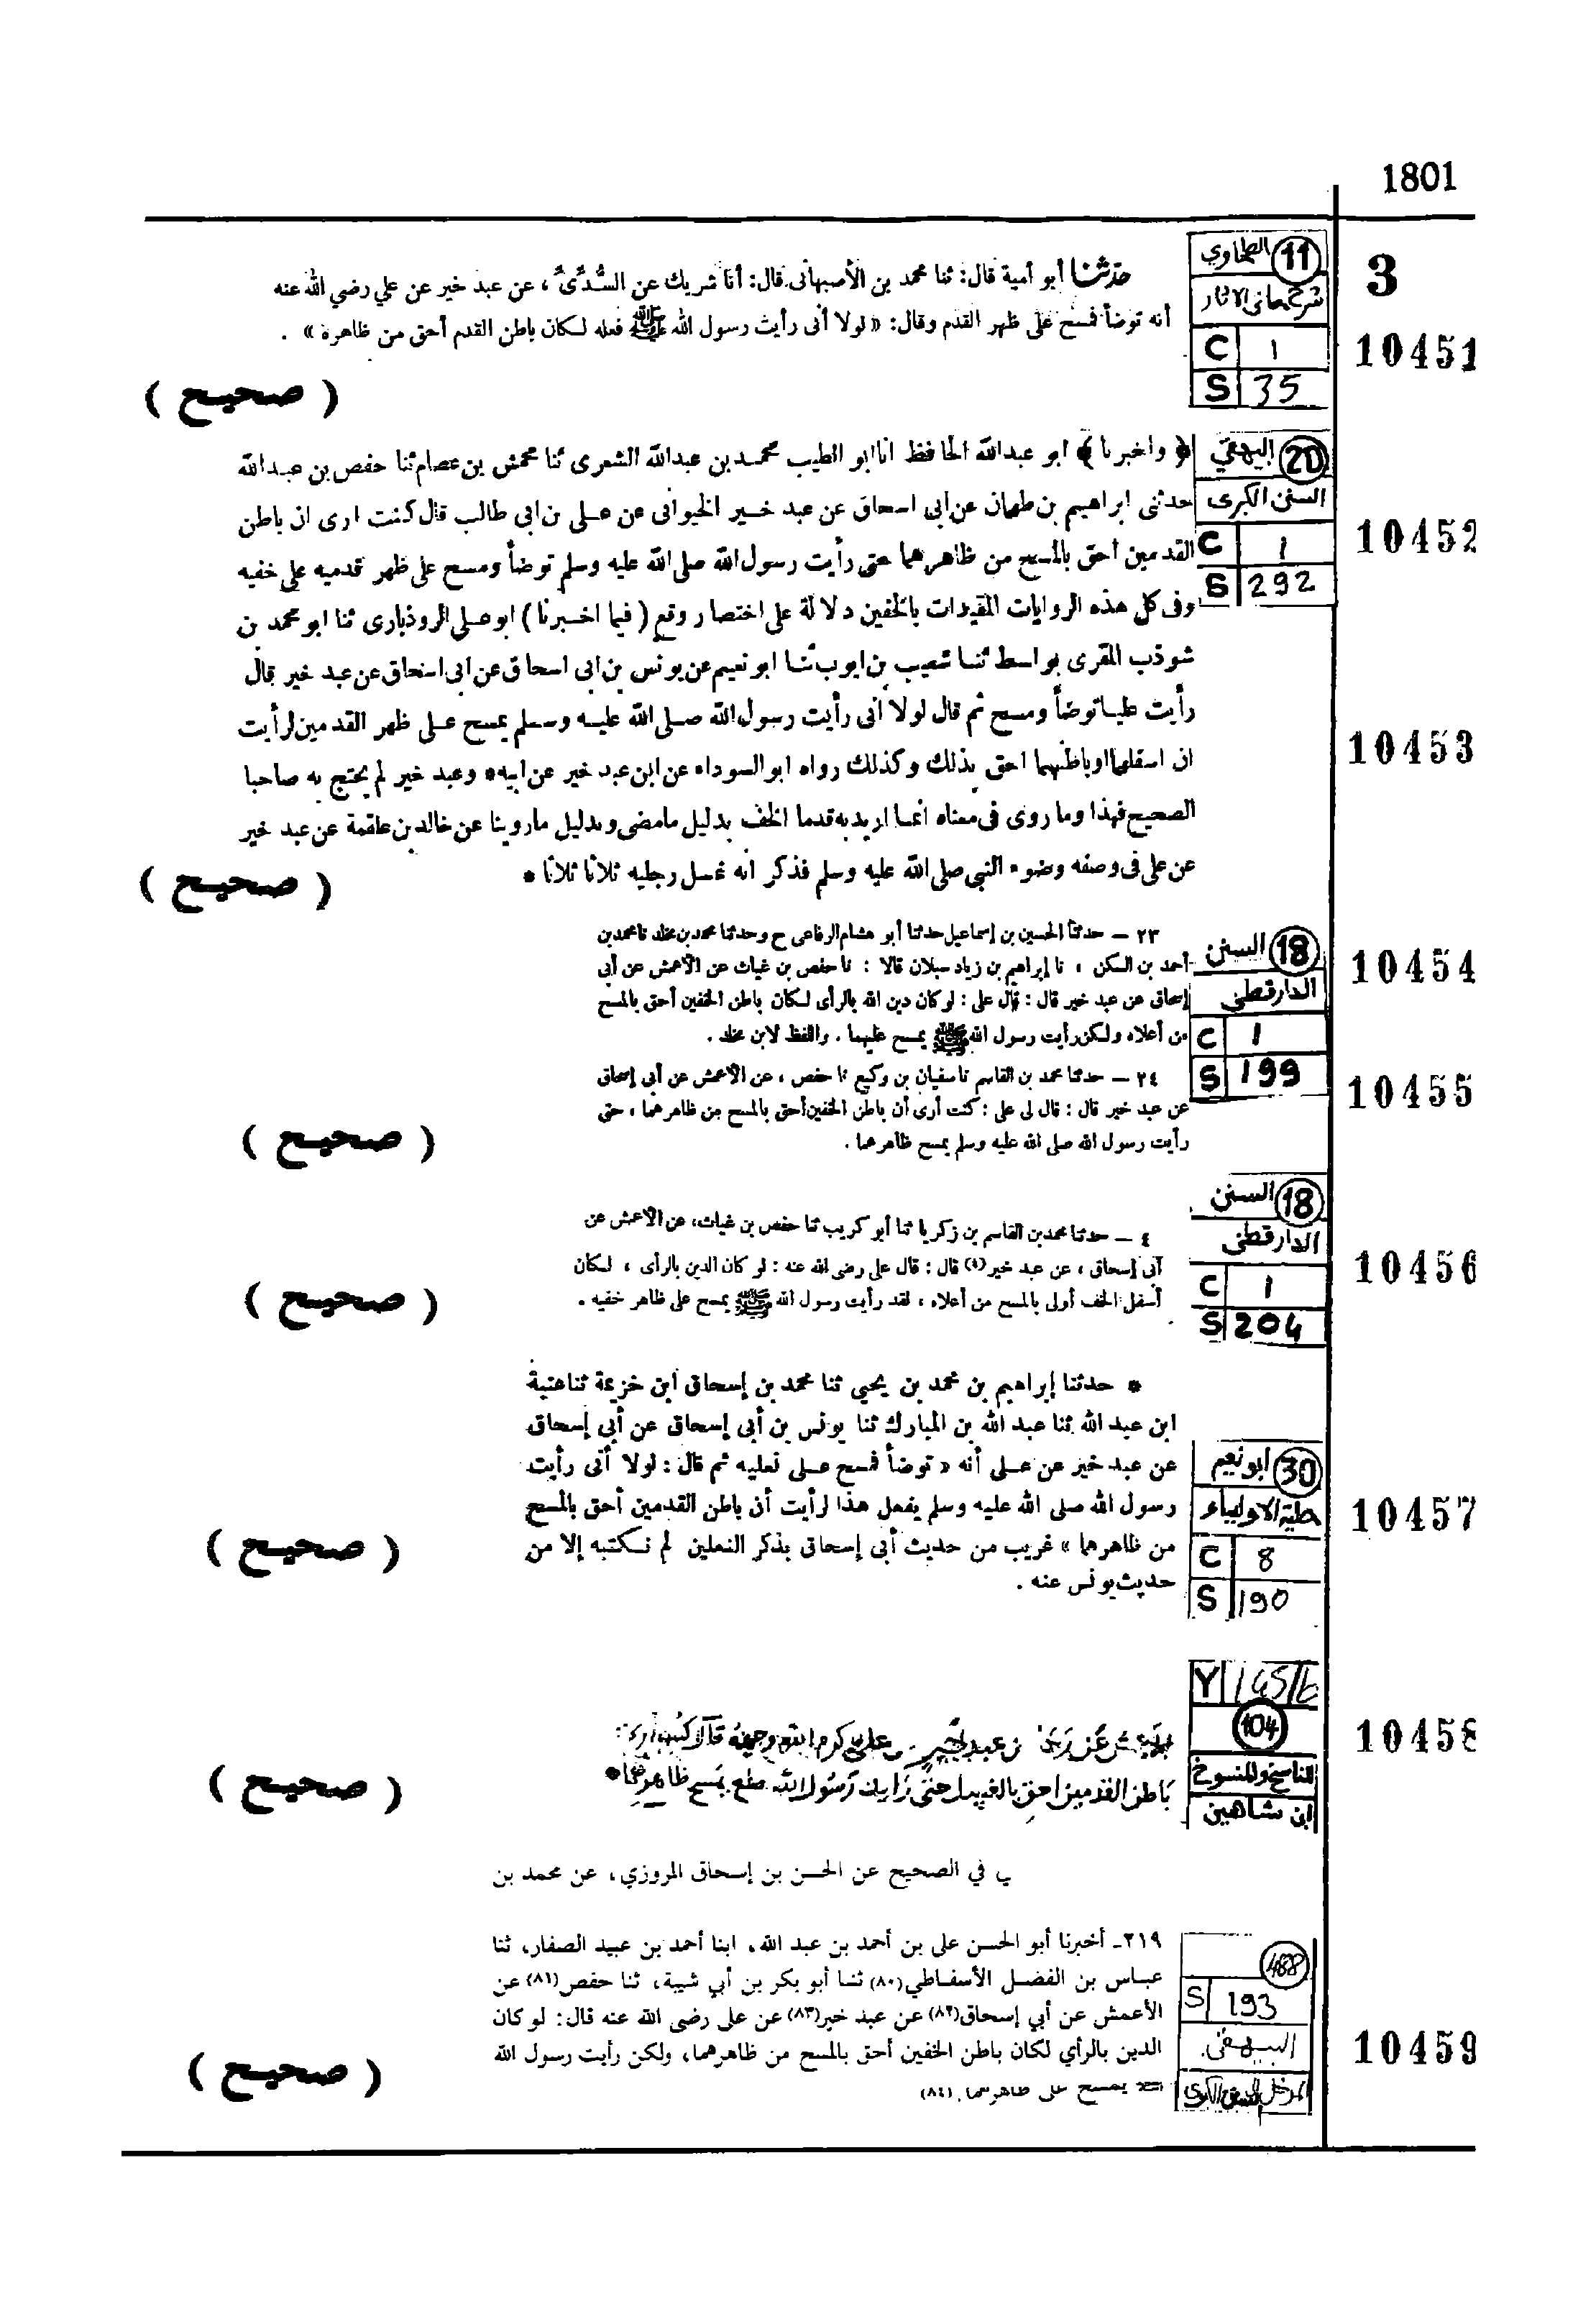 1801
3
11 الطحاوي
شرح معاني الاثار
C 1
S 35
10451
حدثنا أبو أمية قال: ثنا محمد بن الأصبهانى قال: أنا شريك عن السُّدِّىِّ ، عن عبد خير عن علي رضي الله عنه
أنه توضأ فمسح على ظهر القدم وقال: « لولا أنى رأيت رسول الله ﷺ فعله لكان باطن القدم أحق من ظاهره » .
( صحيح )
20 البيهقي
السنن الكبرى
C 1
S 292
10452
﴿ واخبرنا ﴾ ابو عبدالله الحافظ انا ابو الطيب محمد بن عبدالله الشعرى ثنا محمش بن عصام ثنا حفص بن عبدالله
حدثنى ابراهيم بن طهمان عن ابى اسحاق عن عبد خير الخيوانى عن على بن ابي طالب قال كنت ارى ان باطن
القدمين احق بالمسح من ظاهرهما حتى رأيت رسول الله صلى الله عليه وسلم توضأ ومسح على ظهر قدميه على خفيه
وفى كل هذه الروايات المقيدات بالخفين دلالة على اختصار وقع ( فيما اخبرنا ) ابو على الروذبارى ثنا ابو محمد بن
شوذب المقرى بواسط ثنا شعيب بن ايوب ثنا ابو نعيم عن يونس بن ابى اسحاق عن ابى اسحاق عن عبد خير قال
رأيت عليا توضأ ومسح ثم قال لولا أنى رأيت رسول الله صلى الله عليه وسلم يمسح على ظهر القدمين لرأيت
10453
ان اسفلهما او باطنهما احق بذلك وكذلك رواه ابو السوداء عن ابن عبد خير عن ابيه * وعبد خير لم يحتج به صاحبا
الصحيح فهذا وما روى فى معناه انما اريد به قدما الخف بدليل ما مضى وبدليل ما روينا عن خالد بن علقمة عن عبد خير
عن على فى وصفه وضوء النبي صلى الله عليه وسلم فذكر انه غسل رجليه ثلاثا ثلاثا *
( صحيح )
18 السنن
الدارقطنى
C 1
S 199
10454
٢٣ – حدثنا الحسين بن إسماعيل حدثنا أبو هشام الرفاعى ح وحدثنا محمد بن مخلد نا محمد بن
أحمد بن السكن ، نا إبراهيم بن زياد سبلان قالا : نا حفص بن غياث عن الأعمش عن أبى
إسحاق عن عبد خير قال : قال على : لو كان دين الله بالرأى لكان باطن الخفين أحق بالمسح
من أعلاه ولكن رأيت رسول الله ﷺ يمسح عليهما . واللفظ لابن مخلد .
10455
٢٤ – حدثنا محمد بن القاسم نا سفيان بن وكيع نا حفص ، عن الأعمش عن أبى إسحاق
عن عبد خير قال : قال لى على : كنت أرى أن باطن الخفين أحق بالمسح من ظاهرهما ، حتى
رأيت رسول الله صلى الله عليه وسلم يمسح ظاهرهما .
( صحيح )
18 السنن
الدارقطنى
C 1
S 204
10456
٤ – حدثنا محمد بن القاسم بن زكريا ثنا أبو كريب ثنا حفص بن غياث، عن الأعمش عن
أبى إسحاق ، عن عبد خير(٤) قال : قال على رضى الله عنه : لو كان الدين بالرأى ، لكان
أسفل الخف أولى بالمسح من أعلاه ، لقد رأيت رسول الله ﷺ يمسح على ظاهر خفيه .
( صحيح )
30 ابو نعيم
حلية الاولياء
C 8
S 190
10457
* حدثنا إبراهيم بن محمد بن يحيى ثنا محمد بن إسحاق ابن خزيمة ثنا عتبة
ابن عبد الله ثنا عبد الله بن المبارك ثنا يونس بن أبى إسحاق عن أبى إسحاق
عن عبد خير عن على أنه « توضأ فمسح على نعليه ثم قال : لولا أنى رأيت
رسول الله صلى الله عليه وسلم يفعل هذا لرأيت أن باطن القدمين أحق بالمسح
من ظاهرهما » غريب من حديث أبى إسحاق بذكر النعلين لم نكتبه إلا من
حديث يونس عنه .
( صحيح )
Y 145/b
104
الناسخ والمنسوخ
ابن شاهين
10458
عن عبد خير عن على كرم الله وجهه قال كنت ارى
باطن القدمين احق بالغسل حتى رايت رسول الله صلعم يمسح ظاهرهما *
( صحيح )
ي في الصحيح عن الحسن بن إسحاق المروزي، عن محمد بن
488
S 193
البيهقى
المدخل السنن الكبرى
10459
٢١٩ـ أخبرنا أبو الحسن على بن أحمد بن عبد الله، ابنا أحمد بن عبيد الصفار، ثنا
عباس بن الفضل الأسفاطي(٨٠) ثنا أبو بكر بن أبي شيبة، ثنا حفص(٨١) عن
الأعمش عن أبي إسحاق(٨٢) عن عبد خير(٨٣) عن على رضى الله عنه قال: لو كان
الدين بالرأي لكان باطن الخفين أحق بالمسح من ظاهرهما، ولكن رأيت رسول الله
ﷺ يمسح على ظاهرهما. (٨٤)
( صحيح )